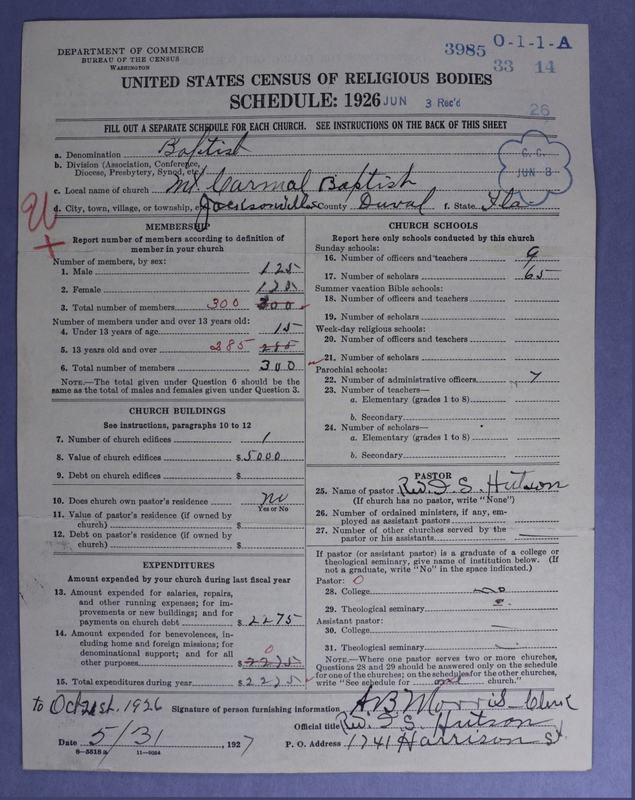 DEPARTMENT OF COMMERCE
BUREAU OF THE CENSUS
WASHINGTON
3985 0-1-1-A
33 14
UNITED STATES CENSUS OF RELIGIOUS BODIES
SCHEDULE: 1926 JUN 3 Rec'd
26
FILL OUT A SEPARATE SCHEDULE FOR EACH CHURCH. SEE INSTRUCTIONS ON THE BACK OF THIS SHEET
C. C.
JUN 3
a. Denomination Baptist
b. Division (Association, Conference, Diocese, Presbytery, Synod, etc.)
c. Local name of church Mt Carmal Baptish
d. City, town, village, or township, etc. Jacksonville County Duval f. State Fla
MEMBERSHIP
Report number of members according to definition of
member in your church
Number of members, by sex:
1. Male 125
2. Female
3. Total number of members 300 300
Number of members under and over 13 years old:
4. Under 13 years of age 15
5. 13 years old and over 285 285
6. Total number of members 300
NOTE.—The total given under Question 6 should be the
same as the total of males and females given under Question 3.
CHURCH BUILDINGS
See instructions, paragraphs 10 to 12
7. Number of church edifices 1
8. Value of church edifices $5000
9. Debt on church edifices $
10. Does church own pastor's residence no
Yes or No
11. Value of pastor's residence (if owned by
church) $
12. Debt on pastor's residence (if owned by
church) $
EXPENDITURES
Amount expended by your church during last fiscal year
13. Amount expended for salaries, repairs,
and other running expenses; for im-
provements or new buildings; and for
payments on church debt $2275
14. Amount expended for benevolences, in-
cluding home and foreign missions; for
denominational support; and for all 0
other purposes $2275
15. Total expenditures during year $2275
CHURCH SCHOOLS
Report here only schools conducted by this church
Sunday schools:
16. Number of officers and teachers 9
17. Number of scholars 65
Summer vacation Bible schools:
18. Number of officers and teachers
19. Number of scholars
Week-day religious schools:
20. Number of officers and teachers
21. Number of scholars
Parochial schools:
22. Number of administrative officers 7
23. Number of teachers—
a. Elementary (grades 1 to 8)
b. Secondary
24. Number of scholars—
a. Elementary (grades 1 to 8)
b. Secondary
PASTOR
25. Name of pastor Rev. I. S. Hutson
(If church has no pastor, write "None")
26. Number of ordained ministers, if any, em-
ployed as assistant pastors
27. Number of other churches served by the
pastor or his assistants
If pastor (or assistant pastor) is a graduate of a college or
theological seminary, give name of institution below. (If
not a graduate, write "No" in the space indicated.)
Pastor: 0
28. College no
29. Theological seminary
Assistant pastor:
30. College
31. Theological seminary
NOTE.—Where one pastor serves two or more churches,
Questions 28 and 29 should be answered only on the schedule
for one of the churches; on the schedules for the other churches,
write "See schedule for church."
to Oct 1926 Signature of person furnishing information A B Morris Clerk
Official title Rev. I. S. Hutson
Date 5/31, 1927 P. O. Address 1741 Harrison St
8-5518 a 11-9034